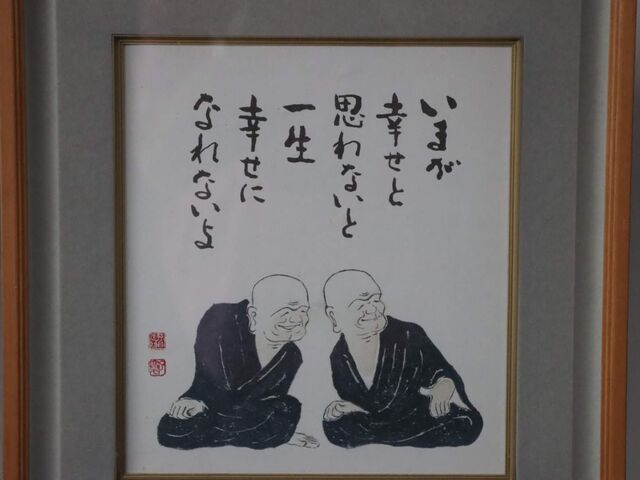 いまが
幸せと
思わないと
一生
幸せに
なれないよ